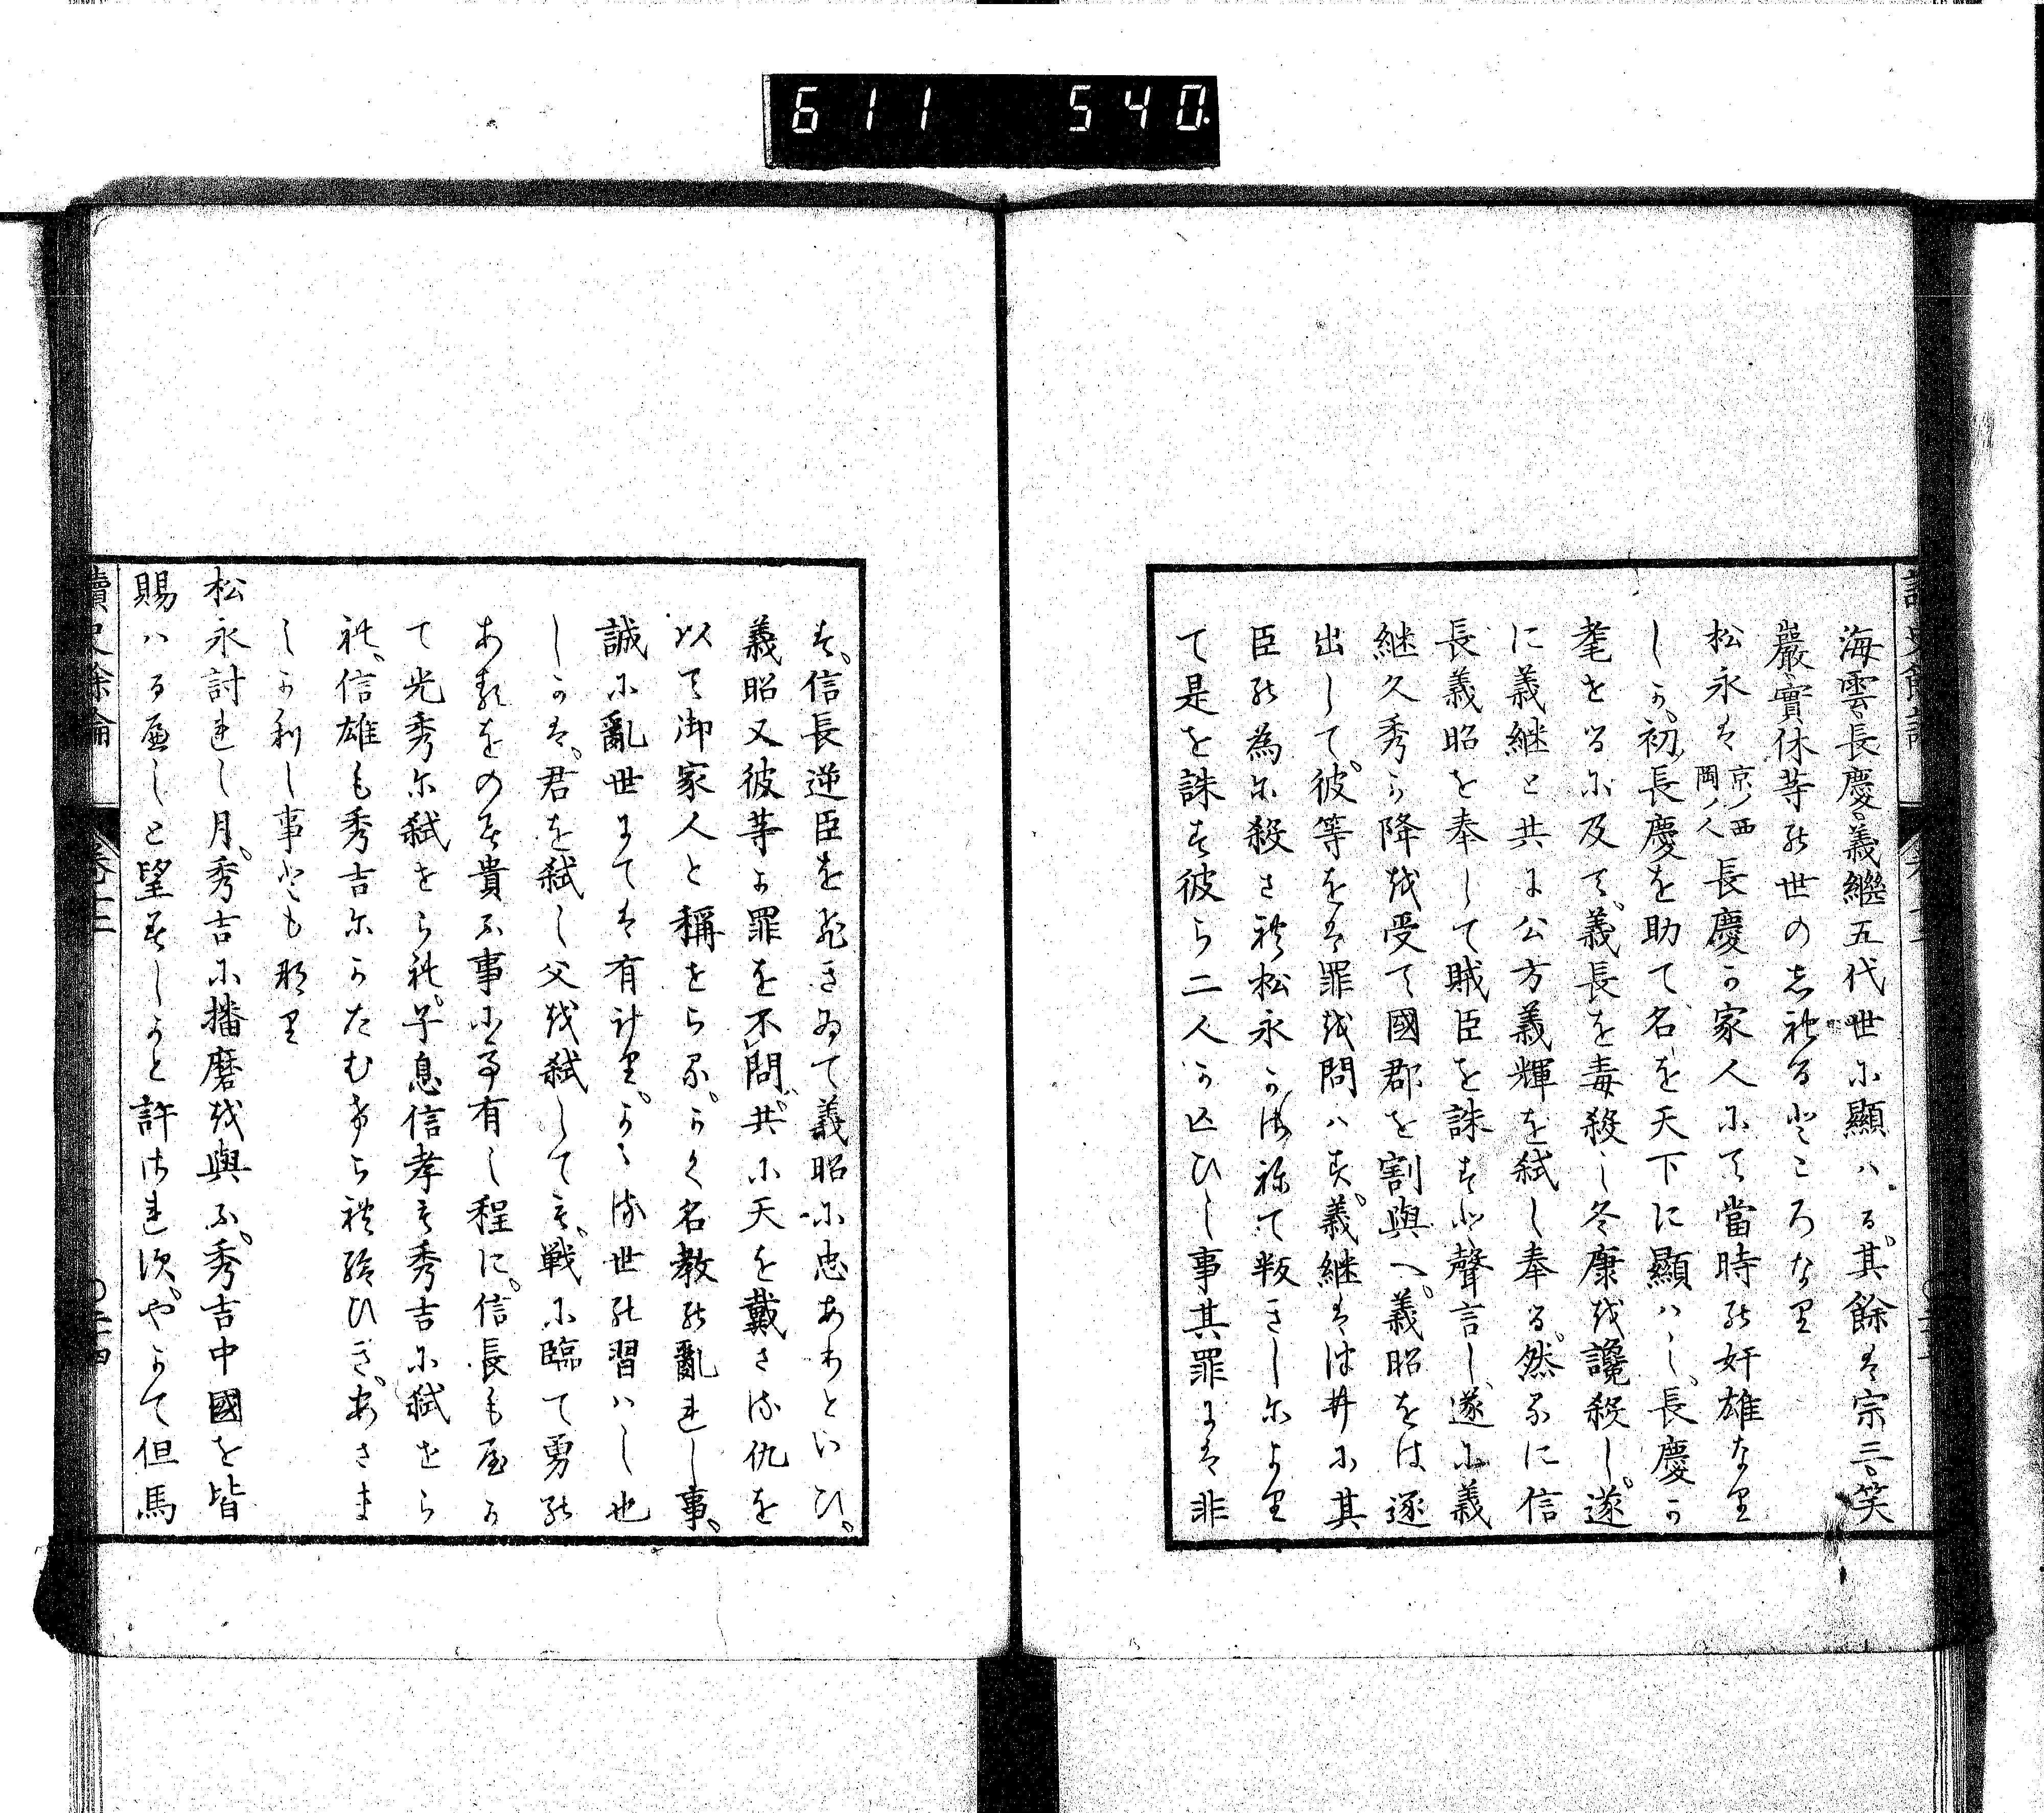 611 540.
海雲長慶義繼五代世に顯はる。其餘は宗三笑
巖實休等の世の志れるところなり
松永は京ノ西岡ノ人長慶か家人にて當時の奸雄なり
しか初長慶を助て名を天下に顯はし長慶か
耄せるに及て義長を毒殺し冬康を讒殺し。遂
に義継と共に公方義輝を弑し奉る。然るに信
長義昭を奉して賊臣を誅すと聲言し遂に義
継久秀か降を受て國郡を割與へ。義昭をは逐
出して。彼等をは罪を問はす。義継は後年に其
臣の為に殺され松永かはねて叛きしにより
て是を誅す彼ら二人か亡ひし事其罪には非
す。信長逆臣を龍きゐて義昭に忠ありといひ。
義昭又彼等か罪を不問。共に天を戴さる仇を
以て御家人と稱せらる。かく名教の亂れし事。
誠に亂世まては有けり。かゝる世の習はし也
しかは。君を弑し父を弑しても。戦に臨て勇の
あるをのみ貴ふ事にて有し程に。信長も屋か
て光秀に弑せられ。子息信孝も秀吉に弑せら
れ。信雄も秀吉にかたむけられ給ひき。あさま
しかりし事とも那り
松永討れし月。秀吉に播磨を與ふ。秀吉中國を皆
賜はるへしと望みしかと許されす。やかて但馬
讀史餘論 卷十二